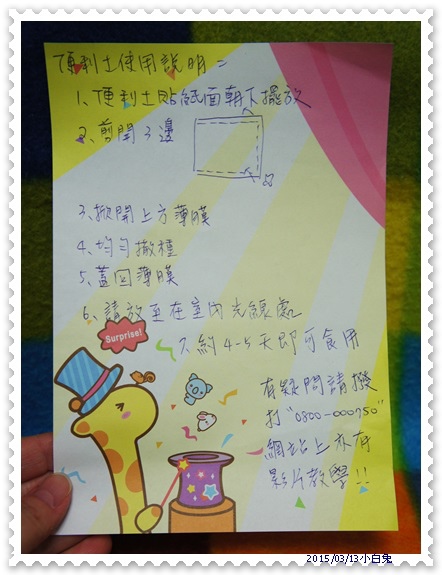 便利土使用說明=
1、便利土貼紙面朝下擺放
2、剪開3邊
3、掀開上方薄膜
4、均勻撒種
5、蓋回薄膜
6、請放至在室內光線處
7、約4-5天即可食用
有疑問請撥
打"0800-000750"
網站上亦有
影片教學!!
Surprise!
2015/03/13小白兔